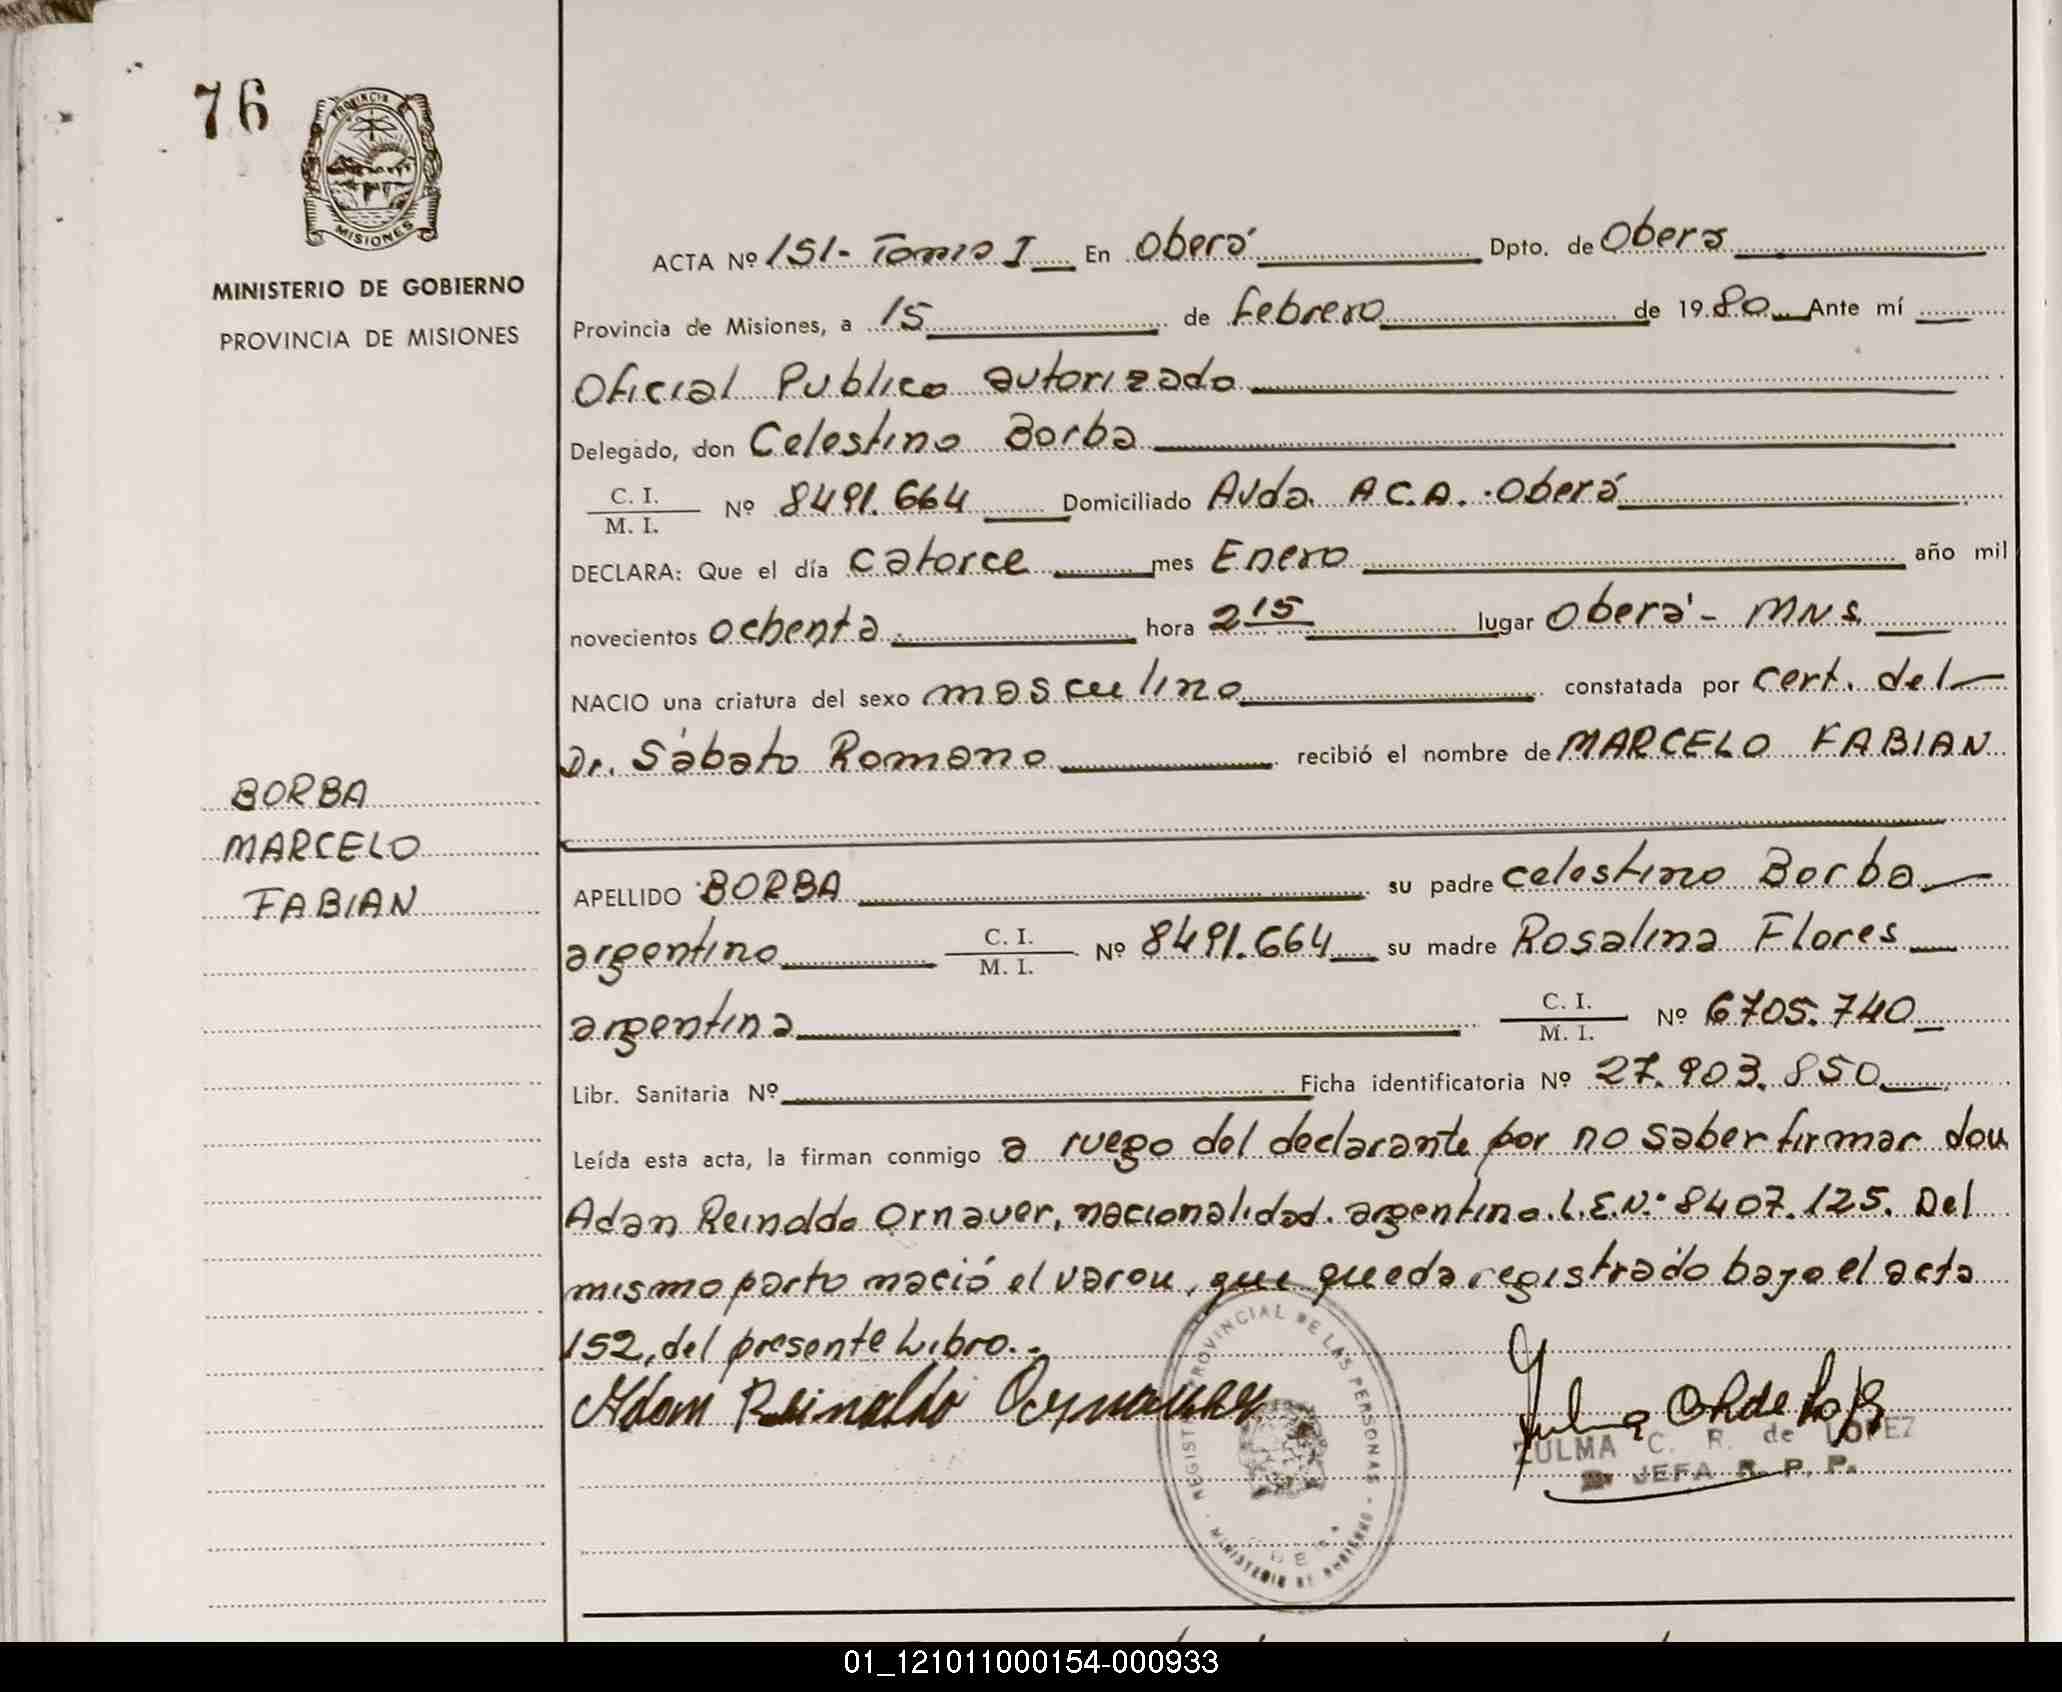 76
PROVINCIA
MISIONES
MINISTERIO DE GOBIERNO
PROVINCIA DE MISIONES
BORBA
MARCELO
FABIAN
ACTA Nº 151- Tomo I En Oberá Dpto. de Obera
Provincia de Misiones, a 15 de Febrero de 1980 Ante mí
Oficial Publico autorizado
Delegado, don Celestino Borba
C. I.
M. I. Nº 8491.664 Domiciliado Avda. A.C.A. - Oberá
DECLARA: Que el día catorce mes Enero año mil
novecientos ochenta hora 2 15 lugar Oberá - MNS
NACIO una criatura del sexo masculino constatada por cert. del
Dr. Sábato Romano recibió el nombre de MARCELO FABIAN
APELLIDO BORBA su padre Celestino Borba
argentino C. I.
M. I. Nº 8491.664 su madre Rosalina Flores
argentina C. I.
M. I. Nº 6705.740
Libr. Sanitaria Nº Ficha identificatoria Nº 27.903.850
Leída esta acta, la firman conmigo a ruego del declarante por no saber firmar don
Adan Reinaldo Ornaver, nacionalidad. argentino. L.E.N: 8407.125. Del
mismo parto nació el varon, que queda registrado bajo el acta
152, del presente Libro.-
Adam Reinaldo Ornauer
REGISTRO PROVINCIAL DE LAS PERSONAS
MINISTERIO DE GOBIERNO
ZULMA C. R. de LOPEZ
JEFA R. P. P.
01_121011000154-000933